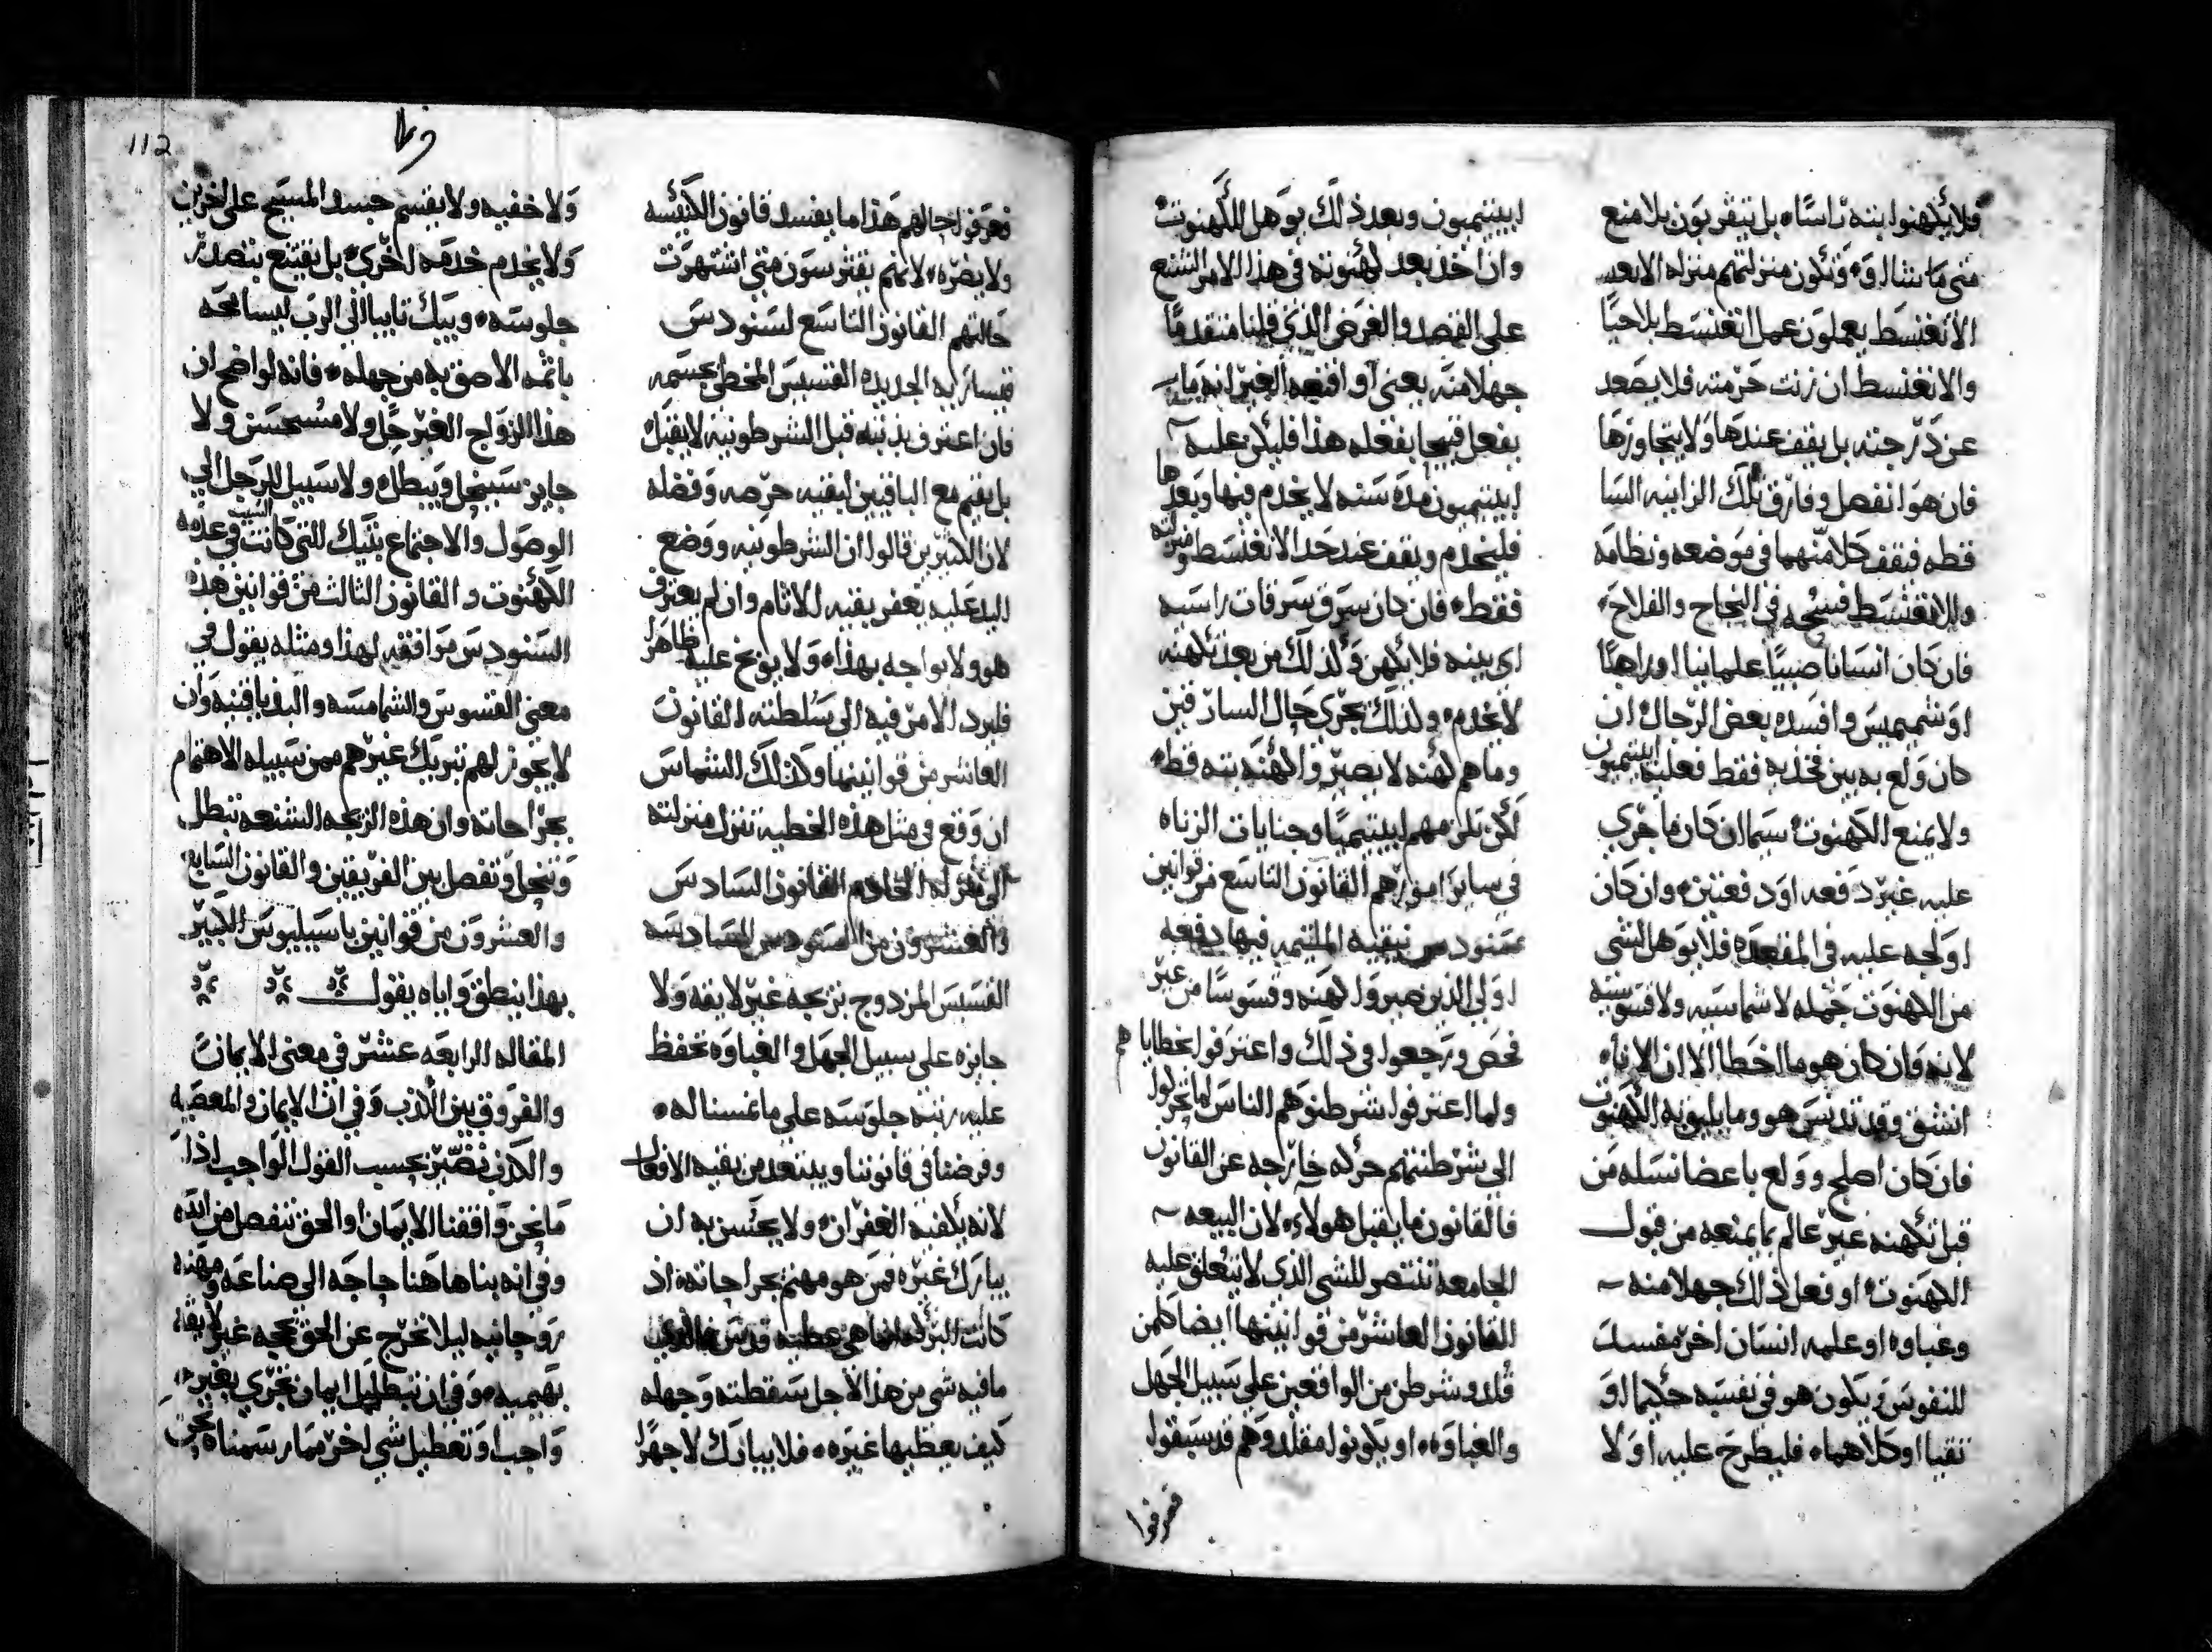 فلا يكهنوا بته راسًا، بل يتقربون بلا منع
متى ما يشاوه وتكون منزلتهم منزله الابعد
الانغنسط يعملون عمل انغنسط بلا حيًا
والانغنسط ان زنت حرمته فلا يصعد
عن درجته بل يقف عندها ولا يتجاوزها
فان هو انفصل وفارق تلك الزانيه السا
قطه فيقف كلا منهما في موضعه ونظامه
والانغنسط فسحه في النجاح والفلاح،
فان كان انسانا صبيًا علمانيا او راهبًا
او شميميس وافسده بعض الرجال ان
كان ولع به بين فخديه فقط فعليه ابيتيميون
ولا يمنع الكهنوت سيما ان كان ما جري
عليه غير دفعه او دفعتين، وان كان
اولجه عليه في المقعده فلا يوهل لشي
من الكهنوت جمله لا شماسيه ولا قسوسيه
لانه وان كان هو ما اخطا الا ان الاناء
انشق وقد تدنس هو وما يليق به الكهنوت
فان كان اصلح وولع باعضا نسله من
قبل تكهنه غير عالم بما يمنعه من قبول
الكهنوت او فعل ذلك جهلا منه
وغباوه او علمه انسان اخر مفسد
للنفوس ويكون هو في نفسه حكيما او
نقيا او كلاهما، فليطرح عليه اولا
ابيتيميون وبعد ذلك يوهل للكهنوت
وان اخذ بعد كهنوته في هذا الامر الشنع
على القصد والغرض الذي قلنا متقدمًا
جهلا منه يعني او اقنعه الغير انه ما
يفعل قبيحا بفعله هذا فليكن عليه
ابيتيميون مدة سنه لا يخدم فيها وبعدها
فليخدم ويقف عند حد الانغنسط ومنزلته
فقط، فان كان سرق سرقات راسيه
اي بينه فلا يكهن وكذلك من بعد تكهنه
لا يخدم، ولذلك يجري حال السارقين
وما هم كهنه لا يصيروا كهنه بته قط
لكن تلزمهم ابيتيميا وجنايات الزناه
في ساير امورهم القانون التاسع من قوانين
سنودس نيقيه الملتيمه فيها دفعه
اولي الذين صيروا كهنه وقسوسًا من غير
فحص ورجعوا في ذلك واعترفوا بخطاياهم
ولما اعترفوا شرطنوهم الناس لما تحركوا
الى شرطنتهم حركه خارجه عن القانون
فالقانون ما يقبل هولاء، لان البيعه
الجامعه تنتصر للشي الذي لا يتعلق عليه
القانون العاشر من قوانينها ايضا كلمن
قلد وشرطن من الواقعين على سبيل الجهل
والغباوه، او يكونوا مقلدوهم قد سبقوا
فعرفوا
112
فعرفوا حالهم هذا ما يفسد قانون الكنيسه
ولا يضره، لانهم يقترسون متى اشتهرت
حالتهم القانون التاسع لسنودس
قيسارية الجديده القسيس المخطى بجسمه
فان اعترف بذنبه قبل الشرطونيه لا يقبل
بل يقيم مع الباقيين لبقيه حرصه وفضله
لان الكثيرين قالوا ان الشرطونيه ووضع
اليد عليه يغفر بقيه الاثام وان لم يعترف
هو ولا يواجه بهذا، ولا يوبخ عليه ظاهرًا
فليرد الامر فيه الى سلطته القانون
العاشر من قوانينها وكذلك الشماس
ان وقع في مثل هذه الخطيه تنزل منزلته
الى منزلة الخادم القانون السادس
والعشرون من السنودس السادسه
القسيس المزدوج بزيجه غير لايقه ولا
جايزه على سبيل الجهل والغباوه تحفظ
عليه رتبته جلوسه على ما غمسنا له،
وفرضنا في قانوننا ويبتعد من بقيه الافعال
لانه يكفيه الغفران، ولا يحسن به ان
يبارك غيره فمن هو مهتم بجراحاته، اذ
كانت البركه انما هي عطية قدس فالذي
ما فيه شي من هذا لاجل سقطته وجهله
كيف يعطيها غيره، فلا يبارك لا جهرًا
ولا خفيه ولا يقسم جسد المسيح على اخرين
ولا يخدم خدمه اخري، بل يقتنع بتصدر
جلوسه، ويبك تايبا الي الرب ليسامحه
باثمه الاصق به من جهله، فانه لواضح ان
هذا الزواج الغير حل ولا مستحسن ولا
جايز سينحل ويبطل، ولا سبيل للرجل الي
الوصول والاجتماع بتيك التي كانت السبب في عدمه
الكهنوت والقانون الثالث من قوانين هذه
السنودس مرافقه لهذا ومثله يقول في
معنى القسوس والشمامسه والبوذياقنيه وان
لا يجوز لهم تبريك غيرهم ممن سبيله الاهتمام
بجراحاته وان هذه الزيجه الشنعه تبطل
وتنحل وتفصل بين الفريقين والقانون السابع
والعشرون من قوانين باسيليوس الكبير
بهذا ينطق واياه يقول
المقاله الرابعه عشر في معنى الايمان
والفروق بين الكذب وفي ان الايمان والمعصيه
والكذب تصير بحسب القول الواجب اذا
ما نحن وافقنا الايمان او الحق تنفصل من الله
وفي انه بنا هاهنا حاجه الى صناعه ومهنه
روحانيه ليلا نخرج عن الحق بحجه غير لايقه
بهيميه، وفي ان تبطيل ايمان نجري بغير
واجب او تعطيل شي اخر مما رسمناه نحن